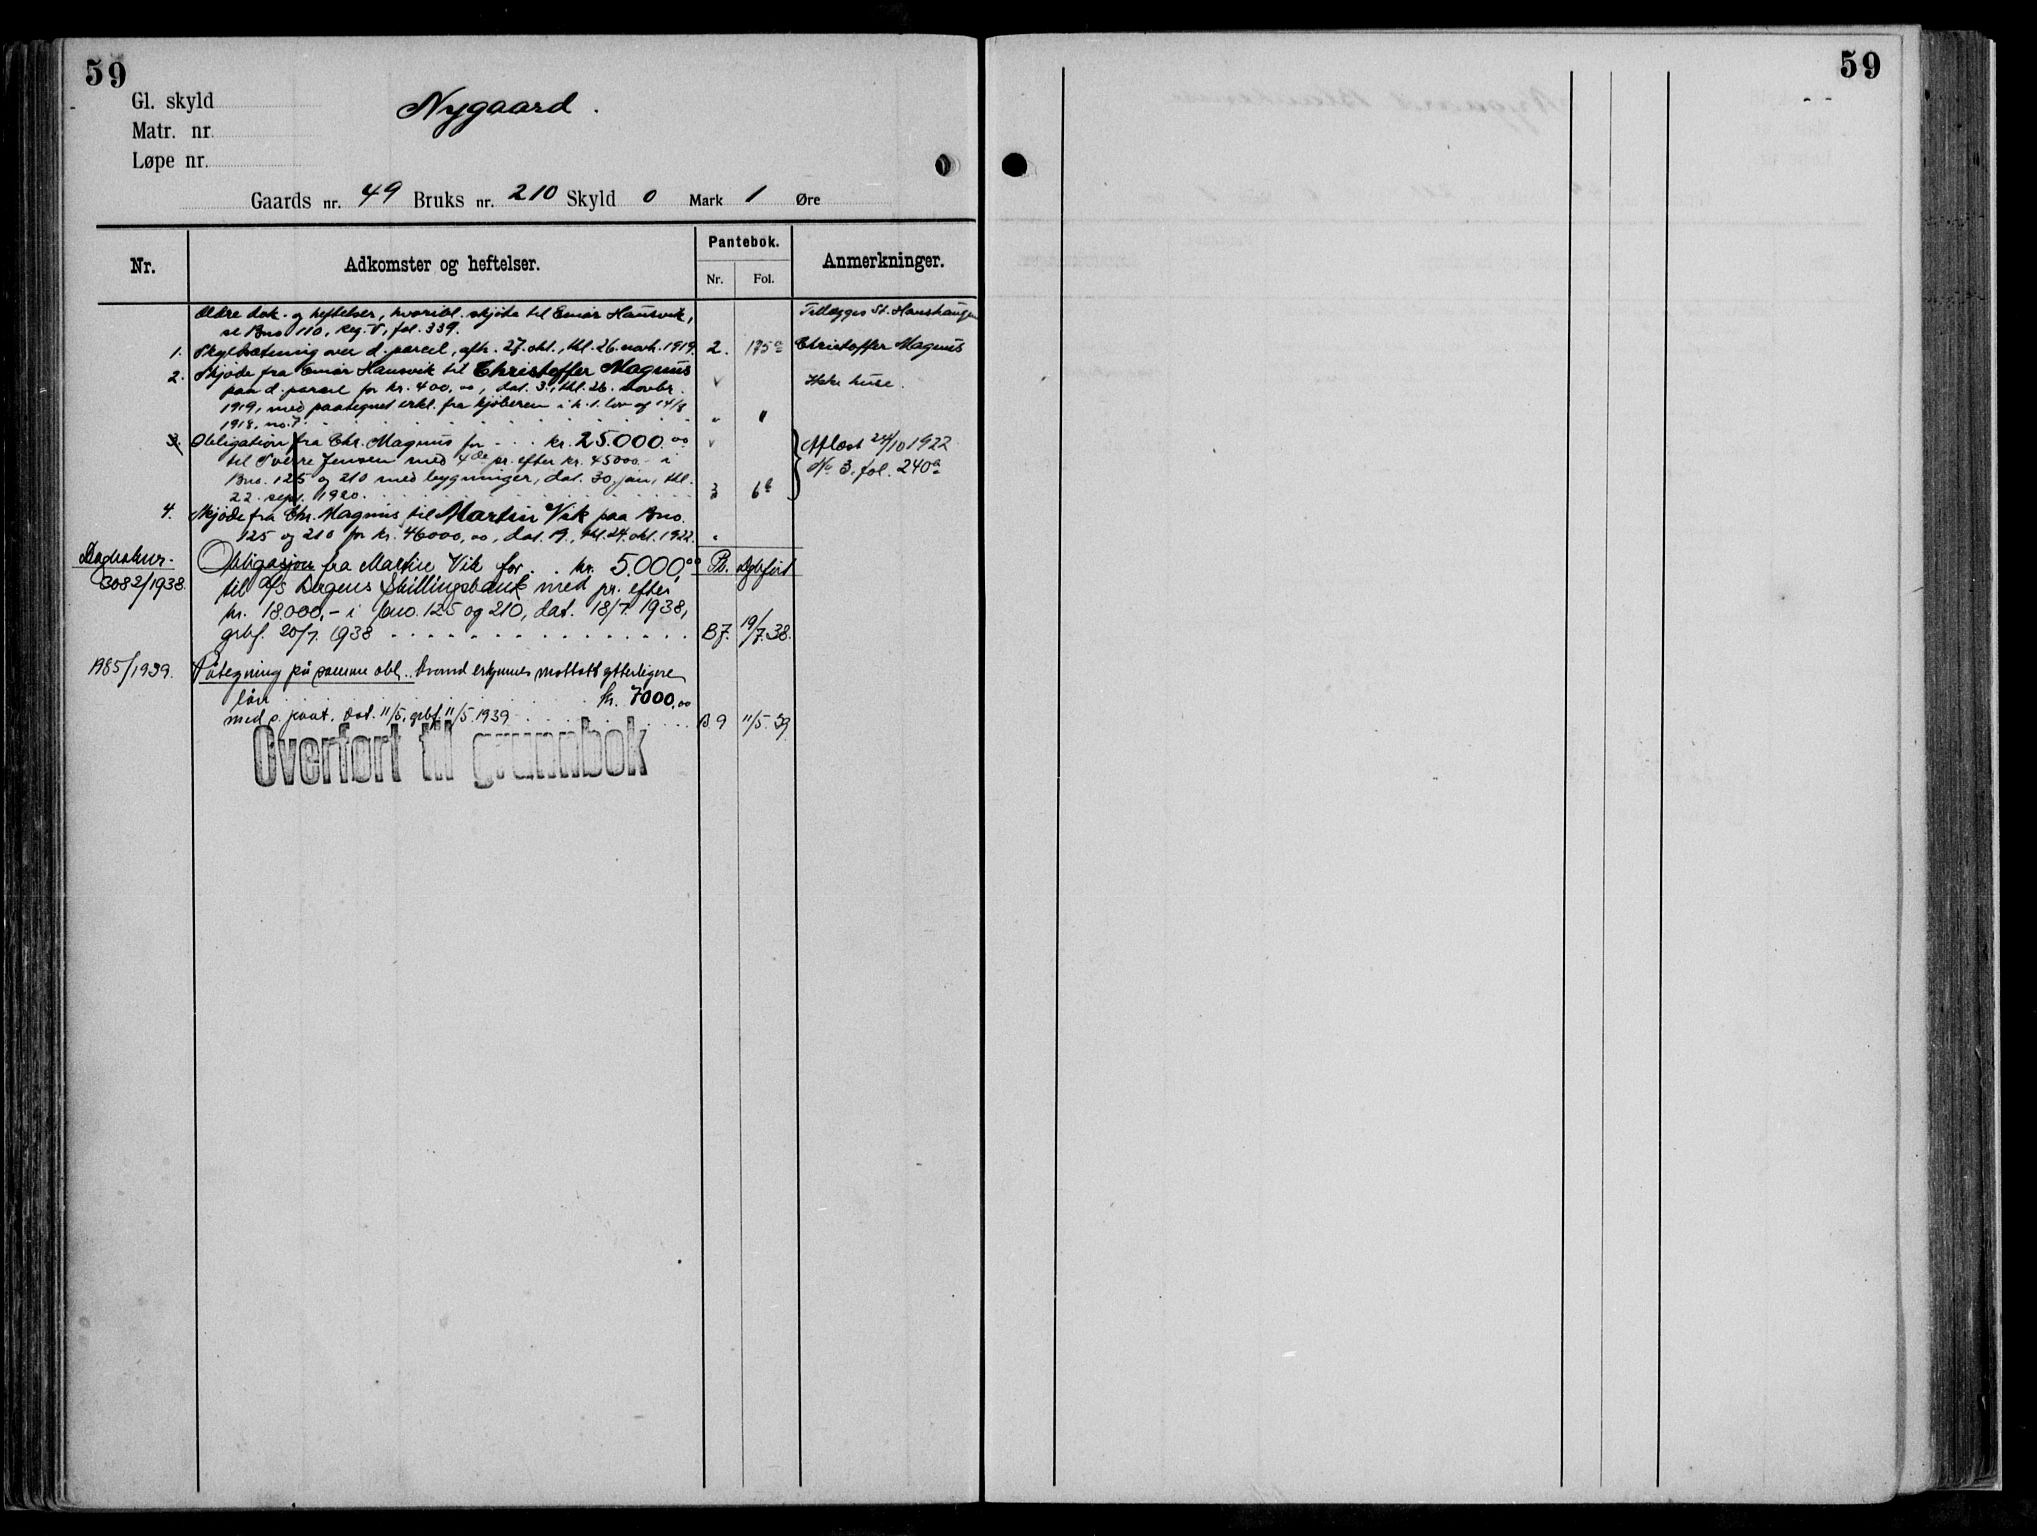 59
59
Gl. skyld
Matr. nr.
Løpe nr.
Nygaard.
Gaards nr. 49 Bruks nr. 210 Skyld 0 Mark 1 Øre
Nr.
Adkomster og heftelser.
Pantebok.
Nr.
Fol.
Anmerkninger.
Ældre dok. og heftelser, hvoribl. skjøte til Einar Hausvik, Tillægges St. Hanshaugen
se Bno 110, Reg. V, fol. 339.
1. Skyldsætning over d. parcel, afh. 27. okt., thl. 26. novb. 1919. 2. 175 Christoffer Magnus
2. Skjøde fra Einar Hausvik til Christoffer Magnus
paa d. parcel for kr. 400,00, dat. 3., thl. 26. novbr. Ikke huse.
1919, med paategnet erkl. fra kjøberen i h. t. lov af 14/8
1918, no. 7 " "
3. Obligation fra Chr. Magnus for kr. 25.000.00 Aflæst 24/10 1922
til Sverre Jensen med 4de pr. efter kr. 45000.- i No 3, fol. 240
Bno. 125 og 210 med bygninger, dat. 30. jan., thl.
22. sept. 1920. 3 6
4. Skjøde fra Chr. Magnus til Martin Vik paa Bno.
125 og 210 for kr. 46000,00, dat. 19., thl. 24. okt. 1922.
Obligasjon fra Martin Vik for kr. 5.000,00 Pb. Dgbført
3082/1938. til A/s Bergens Skillingsbank med pr. efter
kr. 18.000,- i bno. 125 og 210, dat. 18/7 1938,
grbf. 20/7 1938 B 7. 19/7.38.
1985/1939. Påtegning på samme obl., hvorved erkjennes mottatt ytterligere
lån kr. 7000,00
med s. pant. Dat. 11/5, grbf. 11/5 1939 B 9 11/5.39.
Overført til grunnbok